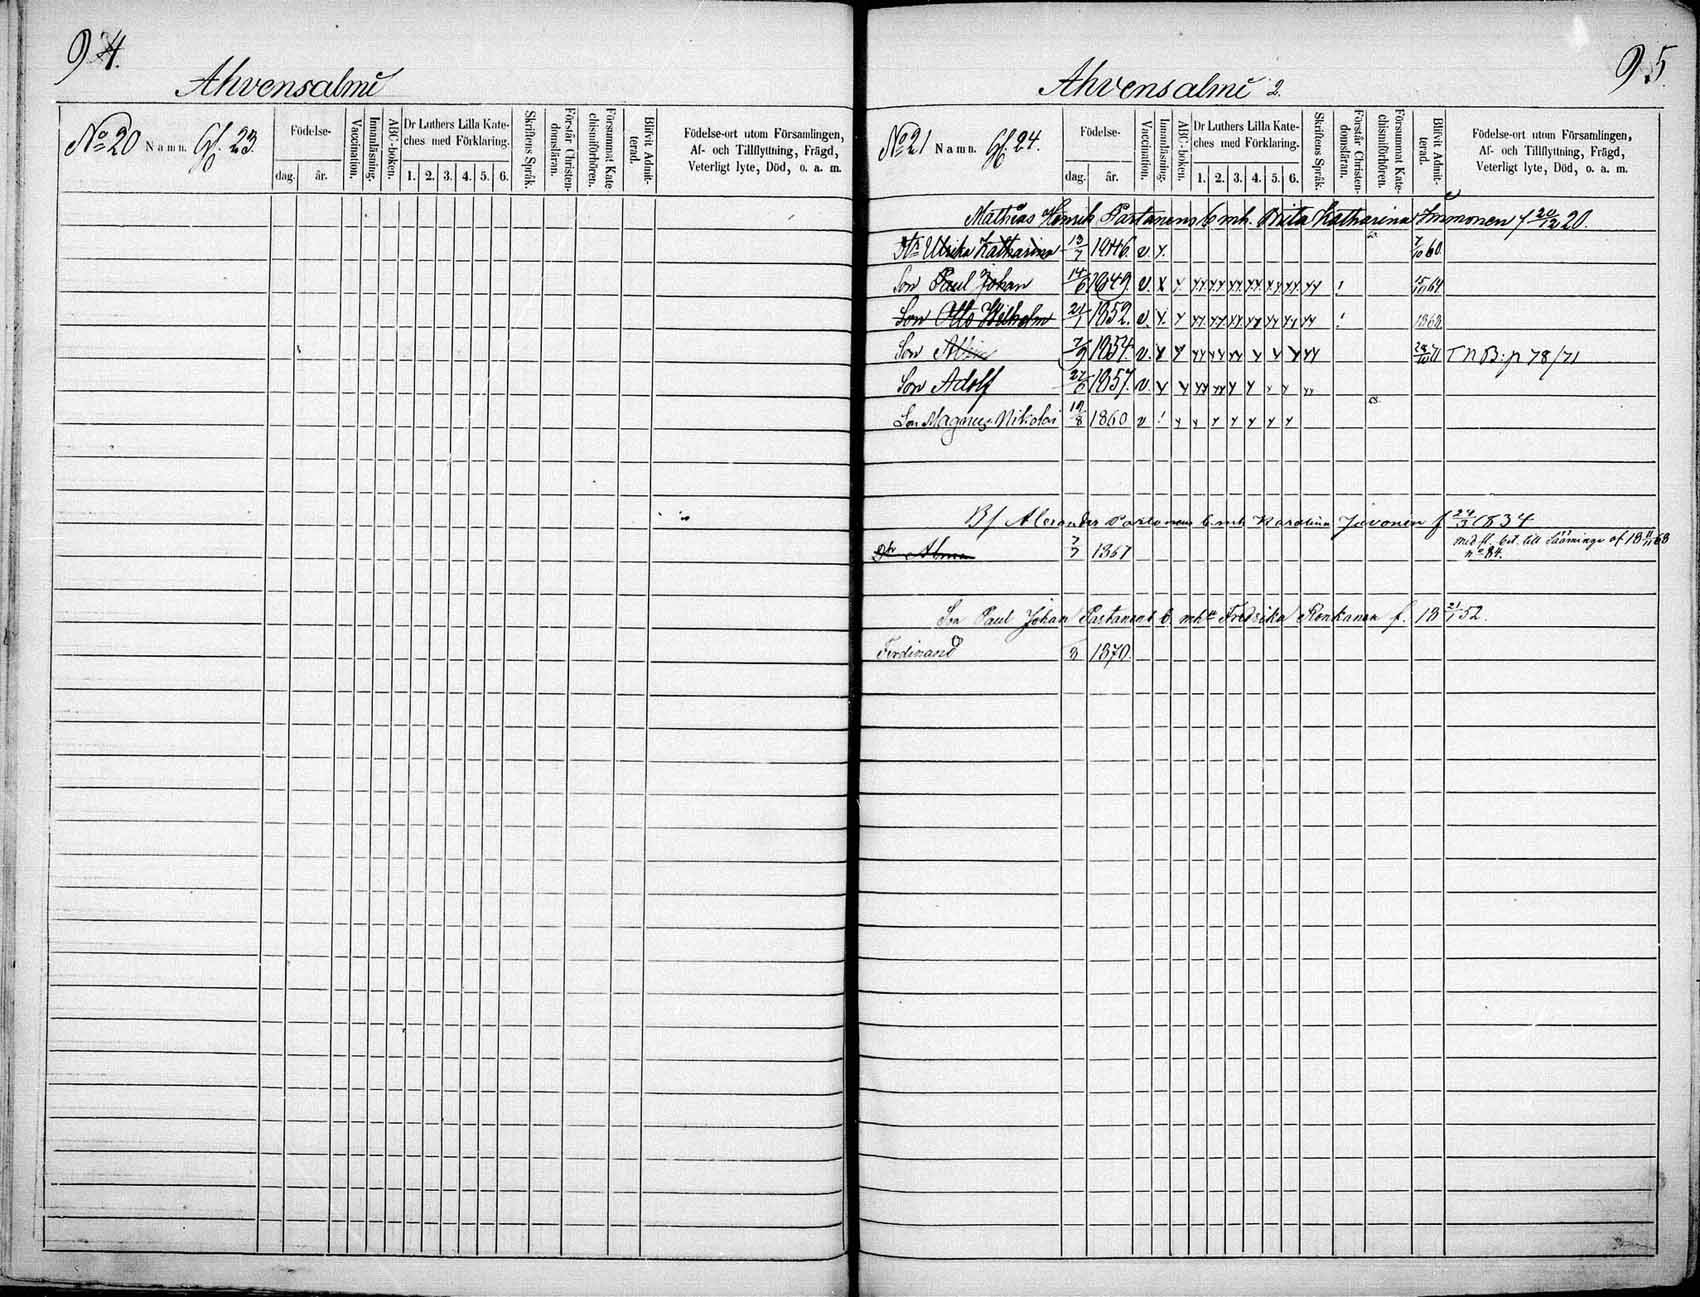 94.
Ahvensalmi
No 20 Namn. Gf. 23.
Födelse-
dag. år.
Vaccination.
Innanläsning.
ABC-boken.
Dr Luthers Lilla Kate-
ches med Förklaring.
1. 2. 3. 4. 5. 6.
Skriftens Språk.
Förstår Christen-
domsläran.
Försummat Kate-
chismiförhören.
Blifvit Admit-
terad.
Födelse-ort utom Församlingen,
Af- och Tillflyttning, Frägd,
Veterligt lyte, Död, o. a. m.
95.
Ahvensalmi 2.
No 21 Namn. Gf. 24.
Födelse-
dag. år.
Vaccination.
Innanläsning.
ABC-boken.
Dr Luthers Lilla Kate-
ches med Förklaring.
1. 2. 3. 4. 5. 6.
Skriftens Språk.
Förstår Christen-
domsläran.
Försummat Kate-
chismiförhören.
Blifvit Admit-
terad.
Födelse-ort utom Församlingen,
Af- och Tillflyttning, Frägd,
Veterligt lyte, Död, o. a. m.
Mathias Henrik Partanens b. mh. Brita Katharina Immonen f 20/12 20.
Dtr Ulrika Katharina 13/7 1846. v. 7/10 60.
Son Paul Johan 14/6 1849. v.
Son Otto Wilhelm 21/1 1852. v. 1868.
Son Albin 7/9 1854. v. T N B: p 78/71
Son Adolf 27/6 1857. v.
Son Magnus Nikolai 10/8 1860 v
Bf Alexander Partanens b. mh Karolina Juvonen f 24/3 1834
Dr Alma 3/7 1867 med fl. bet. till Sääminge af 18 11/11 68
n° 84.
Son Paul Johan Partanens b. mh Fredrika Ronkanen f. 18 21/1 52.
Ferdinand 3 1870.